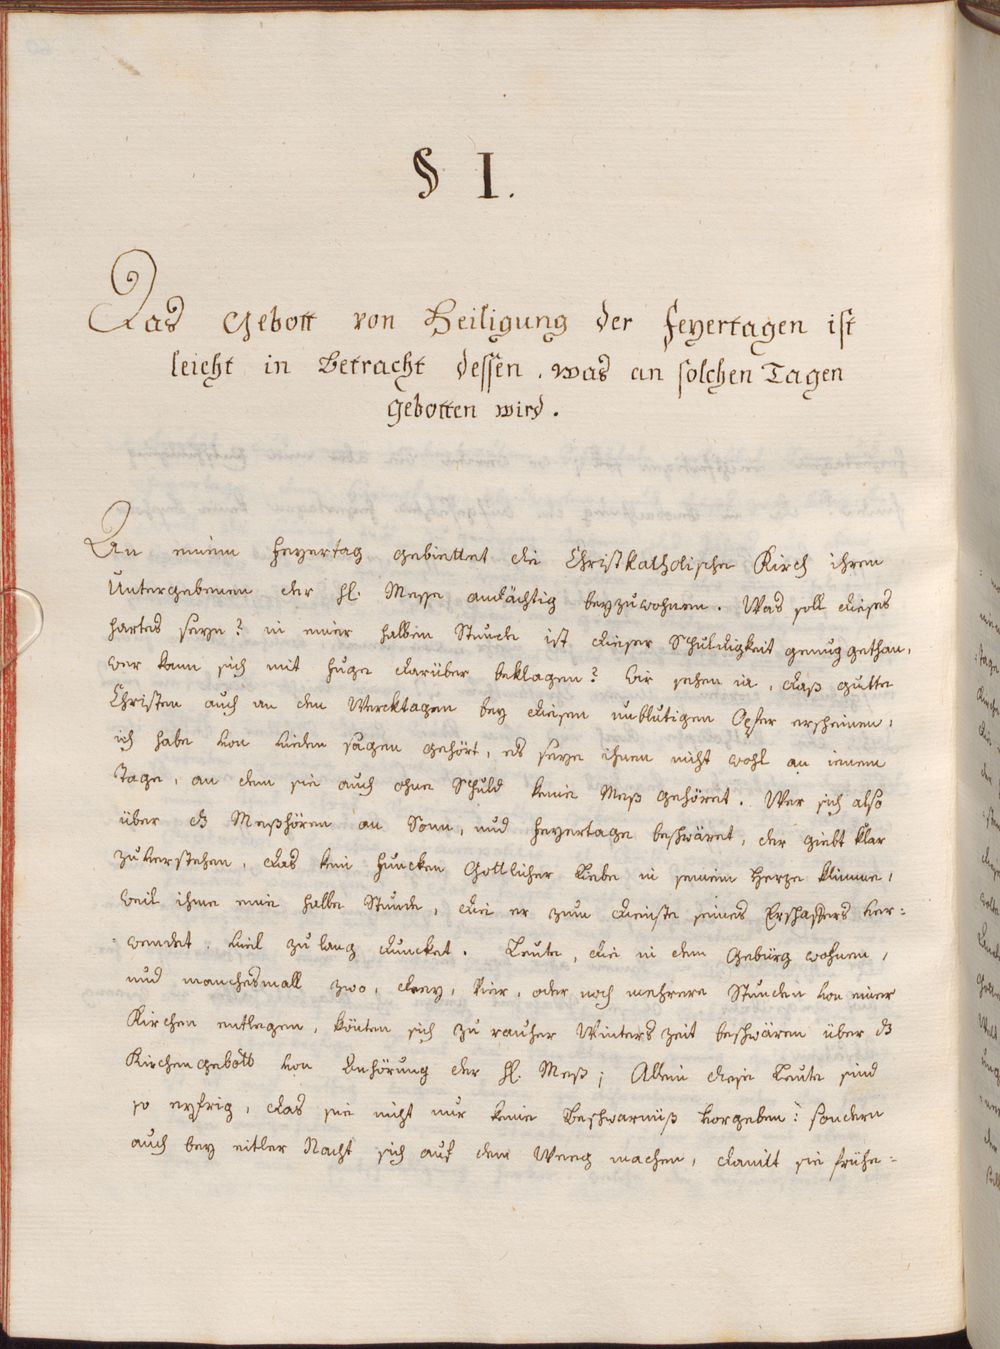 § I.
Das Gebott von Heiligung der Feyertagen ist
leicht in Betracht dessen, was an solchen Tagen
gebotten wird.
An einem Feyertag gebiettet die Christkatholische Kirch ihren
Untergebenen der Hl. Messe andächtig beyzuwohnen. Was soll dieses
hartes seye? in einer halben Stunde ist dieser Schuldigkeit genug gethan,
wer kann sich mit Fuge darüber beklagen? wir sehen ia, daß gutte
Christen auch an den Wercktagen bey diesen unblutigen Opfer erscheinen,
ich habe von vielen sagen gehört, es seye ihnen nicht wohl an ienem
Tage, an dem sie auch ohne Schuld keine Meß gehöret. Wer sich also
über ds Meßhören an Sonn, und Feyertage beschwäret, der giebt klar
zuverstehen, das kein Funcken Gottlicher Liebe in seinem Herze klimme,
weil ihme eine halbe Stunde, die er zum Dienste seines Erschaffers ver=
wendet, viel zu lang duncket. Leute, die in dem Gebürg wohnen,
und manchesmall zwo, drey, vier, oder noch mehrere Stunden von einer
Kirchen entlegen, könten sich zu rauher Winters zeit beschwären über ds
Kirchengebott von Anhörung der Hl. Meß; Allein diese Leute sind
so eyfrig, das sie nicht nur keine Beschwarnüß vorgeben: sondern
auch bey eitler Nacht sich auf den Weeg machen, damit sie frühe=